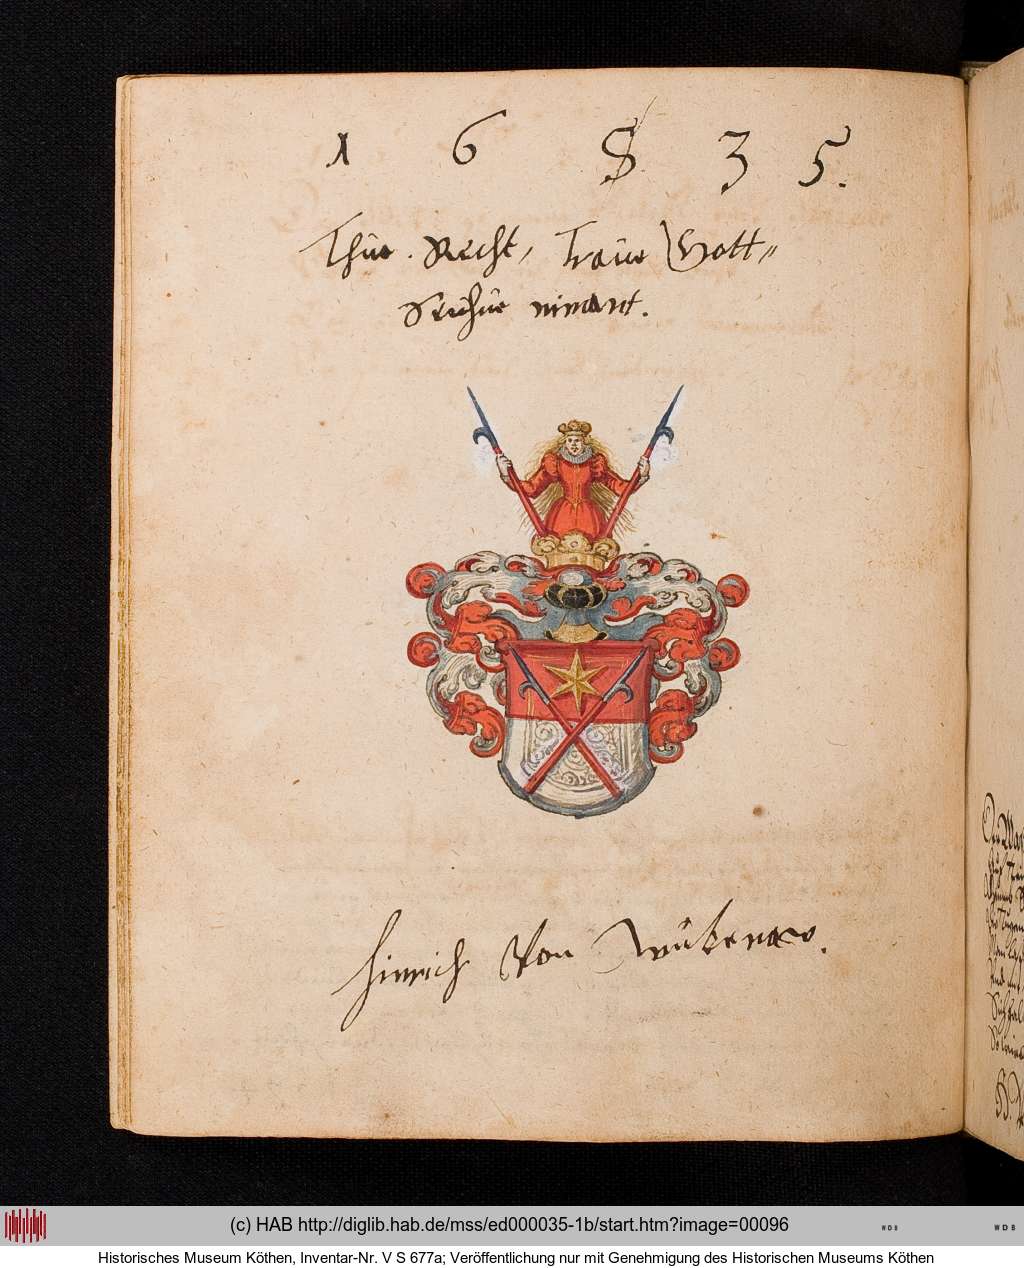 1 6 S 3 5.
Thue. Recht, Traüw Gott,,
Scüchüe nimant.
Hinrich Von
(c) HAB http://diglib.hab.de/mss/ed000035-1b/start.htm?image=00096
WDB
WDB
Historisches Museum Köthen, Inventar-Nr. V S 677a; Veröffentlichung nur mit Genehmigung des Historischen Museums Köthen